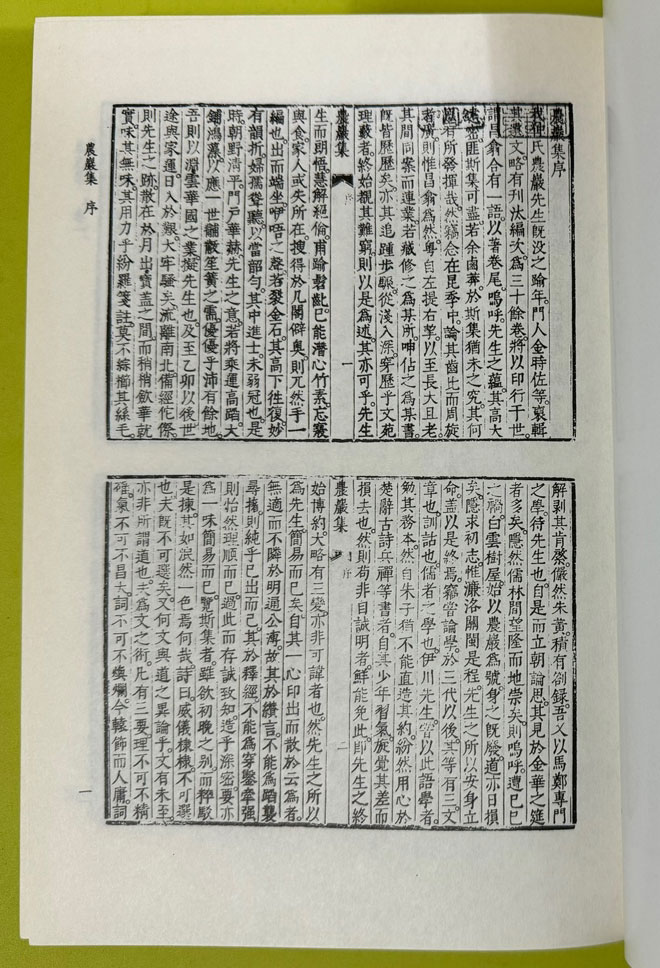 農巖集序
我仲氏農巖先生旣没之踰年門人金時佐等裒輯
其遺文略有刊汰編次爲三十餘卷將以印行于世
謂昌翕合有一語以著卷尾嗚呼先生之蘊其高大
邃密匪斯集可盡若余鹵莽於斯集猶未之究其何
以有所發揮哉然竊念在昆季中論其齒比而周旋
者廣則惟昌翕爲然粤自左提右挈以至長大且老
其間同案而連業若藏修之爲某所呻佔之爲某書
旣皆歷歷矣亦其追踵步驟從淺入深穿歷乎文苑
理藪者終始覩其難窮則以是爲述其亦可乎先生
農巖集 序 一
生而朗悟慧解絕倫甫踰髫齔已能潛心竹素忘寢
與食家人或失所在搜得於几閣僻奥則兀然手一
編也出而端坐咿唔之聲若裂金石其高下往復妙
有韻折婦孺聳聽以當韶勻其中進士未弱冠也是
時朝野淸平門戶華赫先生之意若將乘運高蹈大
鋪鴻藻以應一世黼黻笙簧之需優優乎沛有餘地
吾則以淵雲華國之業擬先生也及至乙卯以後世
途與家運日入於艱大牢騷矣流離南北備經佗傺
則先生之跡散在於月出寶盖之間而稍稍歛華就
實味其無味其用力乎紛羅箋註莫不綜櫛其絲毛
解剥其肯綮儼然朱黄積有劄録吾又以馬鄭專門
之學待先生也自是而立朝論思其見於金華之筵
者多矣隱然儒林間望隆而地崇矣則嗚呼遭己巳
之禍白雲樹屋始以農巖爲號身之旣廢道亦日損
矣隱求初志惟濂洛關閩是程先生之所以安身立
命盖以是終焉竊嘗論學於三代以後其等有三文
章也訓詁也儒者之學也伊川先生嘗以此語學者
勉其務本然自朱子猶不能直造其約紛然用心於
楚辭古詩兵禪等書者自其少年習氣旋覺其差而
損去也然則苟非自誠明者鮮能免此卽先生之終
農巖集 序 二
始博約大略有三變亦非可諱者也然先生之所以
爲先生簡易而已矣自其一心印出而散於云爲者
無適而不隣於明通公溥故其於纘言不能爲蹈襲
尋摘則純乎已出而已其於釋經不能爲穿鑿牽强
則怡然理順而已過此而存誠致知造乎深密要亦
爲一味簡易而已覽斯集者雖欲初晩之别而粹駁
是揀其如泯然一色焉何哉詩曰威儀棣棣不可選
也夫旣不可選矣又何文與道之異論乎文有未至
亦非所謂道也夫爲文之術凡有三要理不可不精
確氣不可不昌大詞不可不燠爛今輇飾而人庸詞
農巖集 序
一